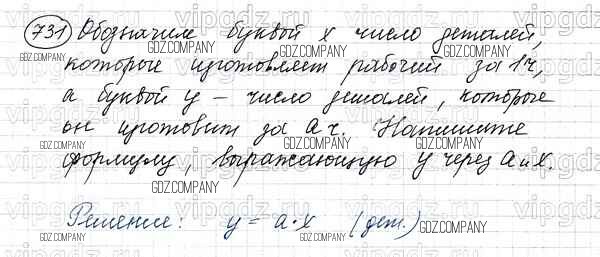 731 Обозначив буквой x число деталей,
которые изготовляет рабочий за 1 ч,
а буквой y – число деталей, которые
он изготовит за a ч. Напишите
формулу, выражающую y через a и x.
Решение: y = a·x (дет.)